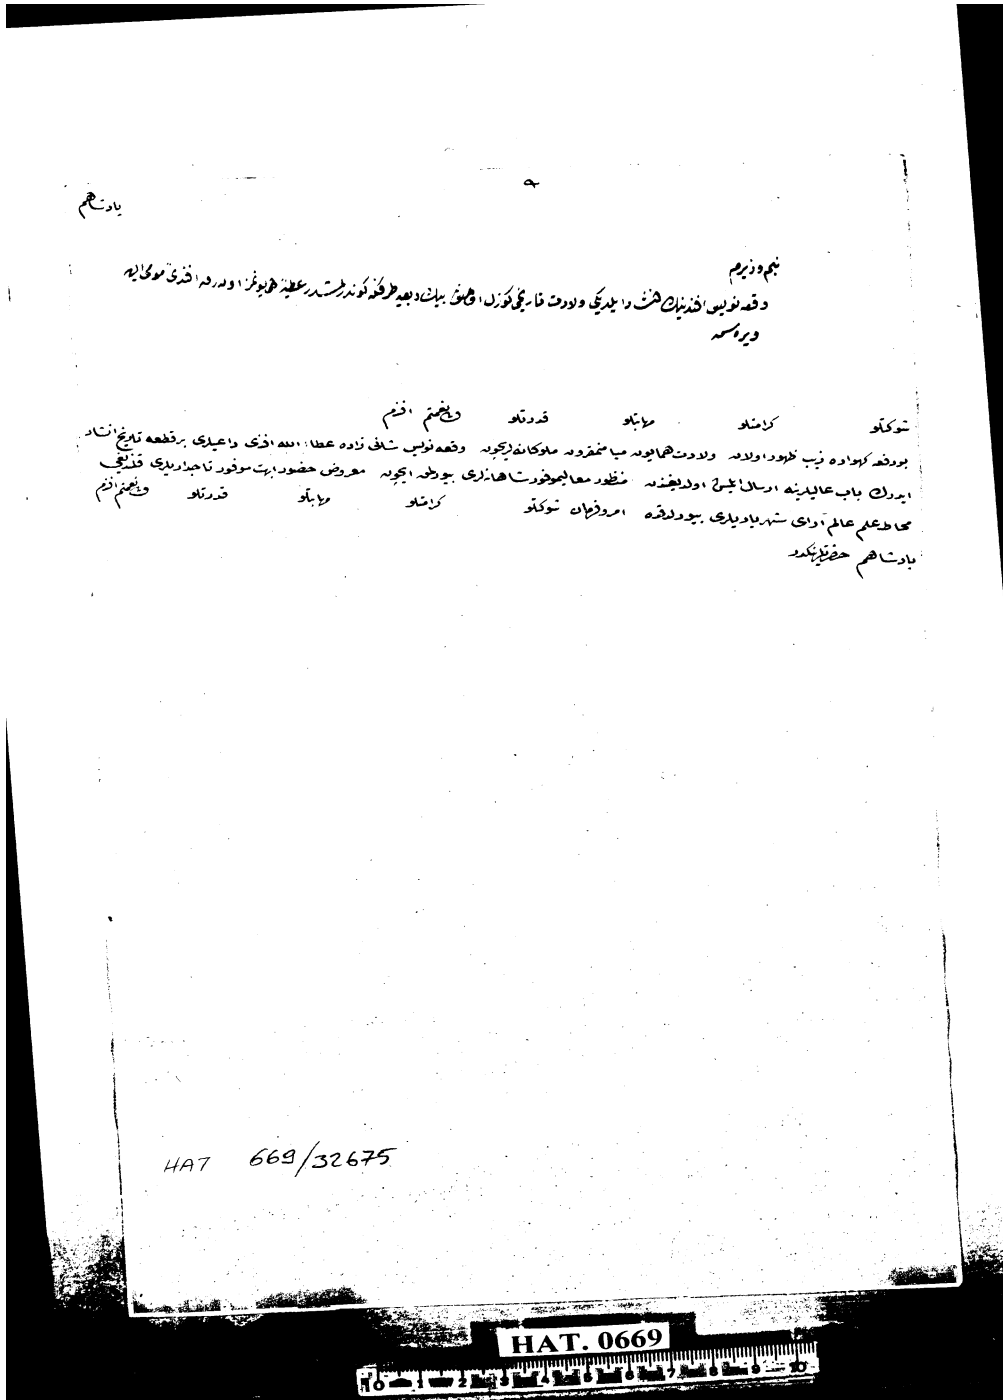 ٩
پادشاهم
بنم وزيرم
وقعه نويس افندينك انشاد ايلديكى ولادت تاريخى كوزل اولمش بيك طرفكه كوندرلمشدر عطيهٔ همايونمز اولهرق افندئ مومى اليه
ويره سن
شوكتلو كرامتلو مهابتلو قدرتلو ولينعمتم افندم
بو دفعه كهواره زيب ظهور اولان ولادت همايون ميامنمقرون ملوكانه لريچون وقعه نويس شانى زاده عطاء الله افندى داعيلرى بر قطعه تاريخ انشاد
ايدرك باب عاليلرينه ارسال ايلمش اولديغندن منظور معاليموفور شاهانه لرى بيورلمق ايچون معروض حضور ابهت موفور تاجداريلرى قلنديغى
محاط علم عالم آراى شهرياريلرى بيورلدقده امر و فرمان شوكتلو كرامتلو مهابتلو قدرتلو ولينعمتم افندم
پادشاهم حضرتلرينكدر
HAT 669/32675
HAT. 0669
10 1 2 3 4 5 6 7 8 9 10